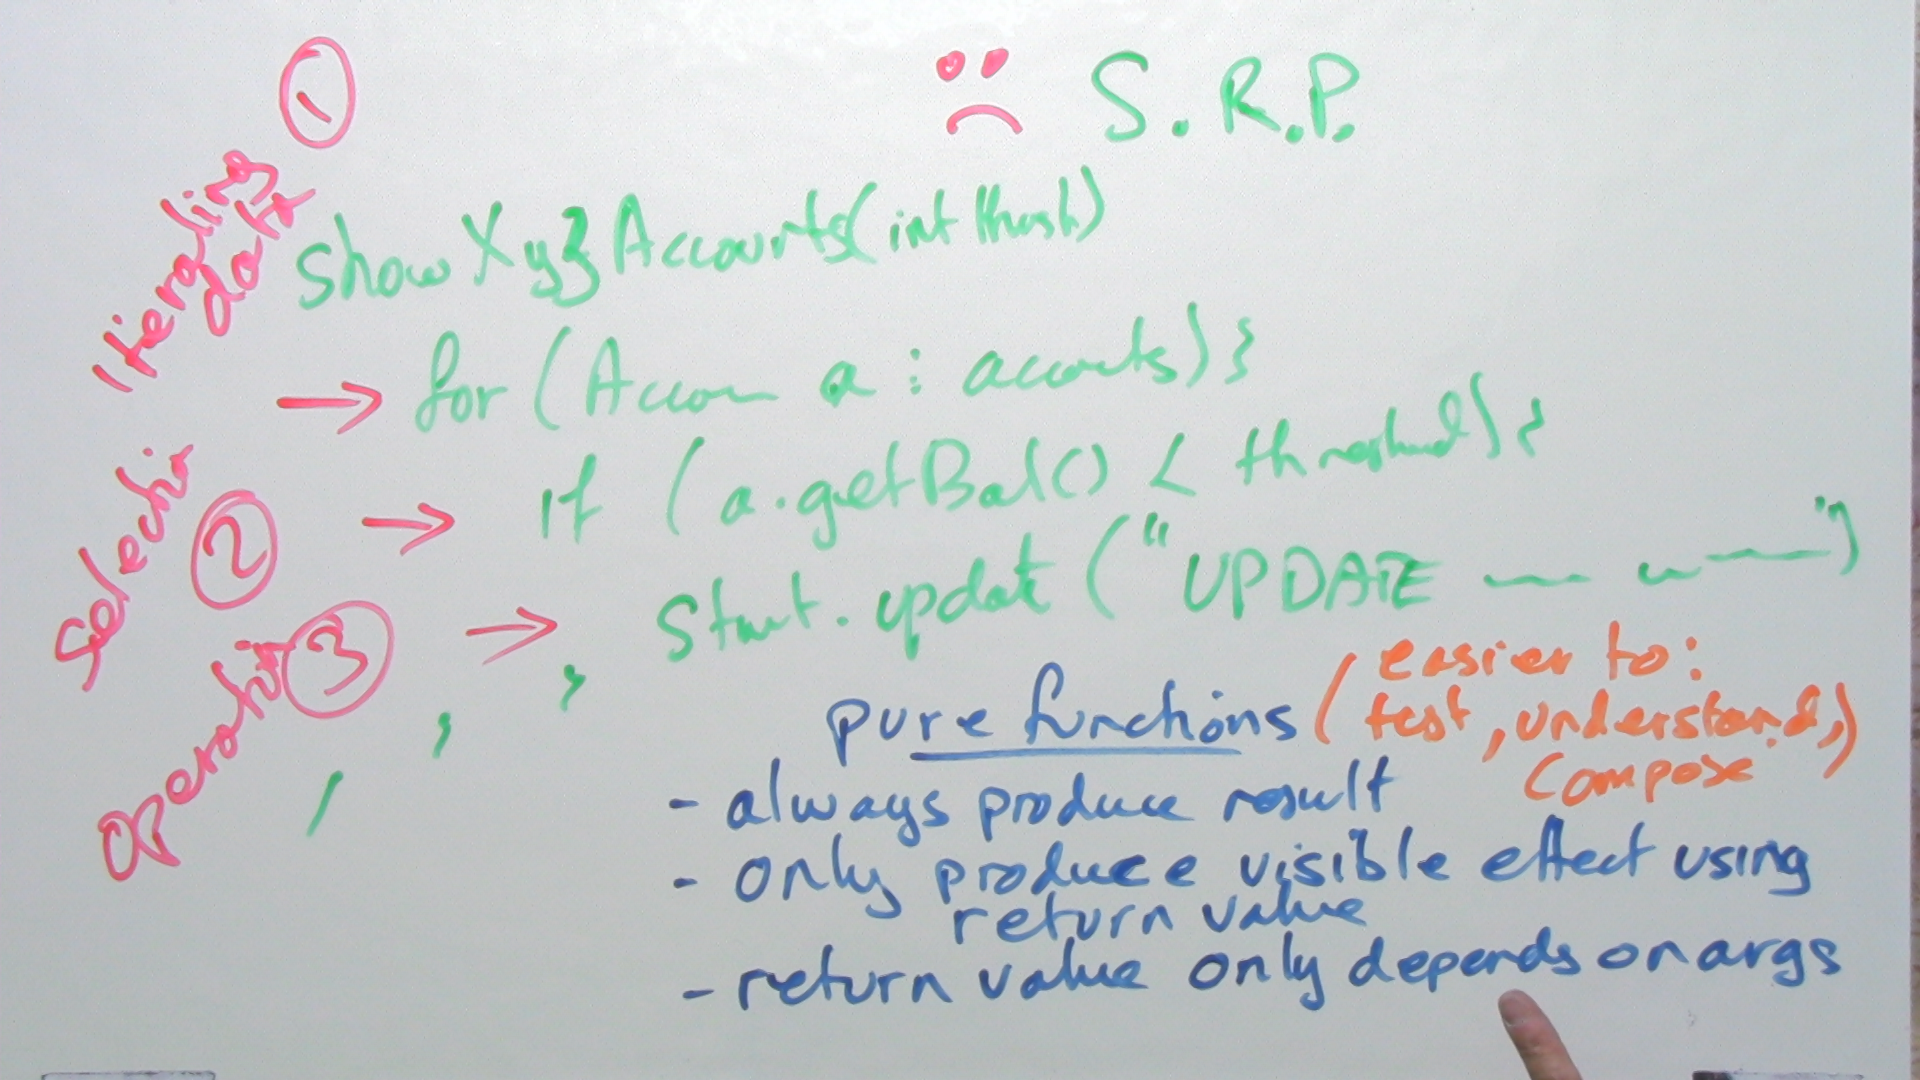 S.R.P.
1
Iterating
data
showXyzAccounts(int thresh)
for (Accou a : accounts) {
Selectio
2
if (a.getBal() < threshold) {
Operation
3
Stmt.update("UPDATE
pure functions (easier to:
test, understand,)
compose
- always produce result
- only produce visible effect using
return value
- return value only depends on args